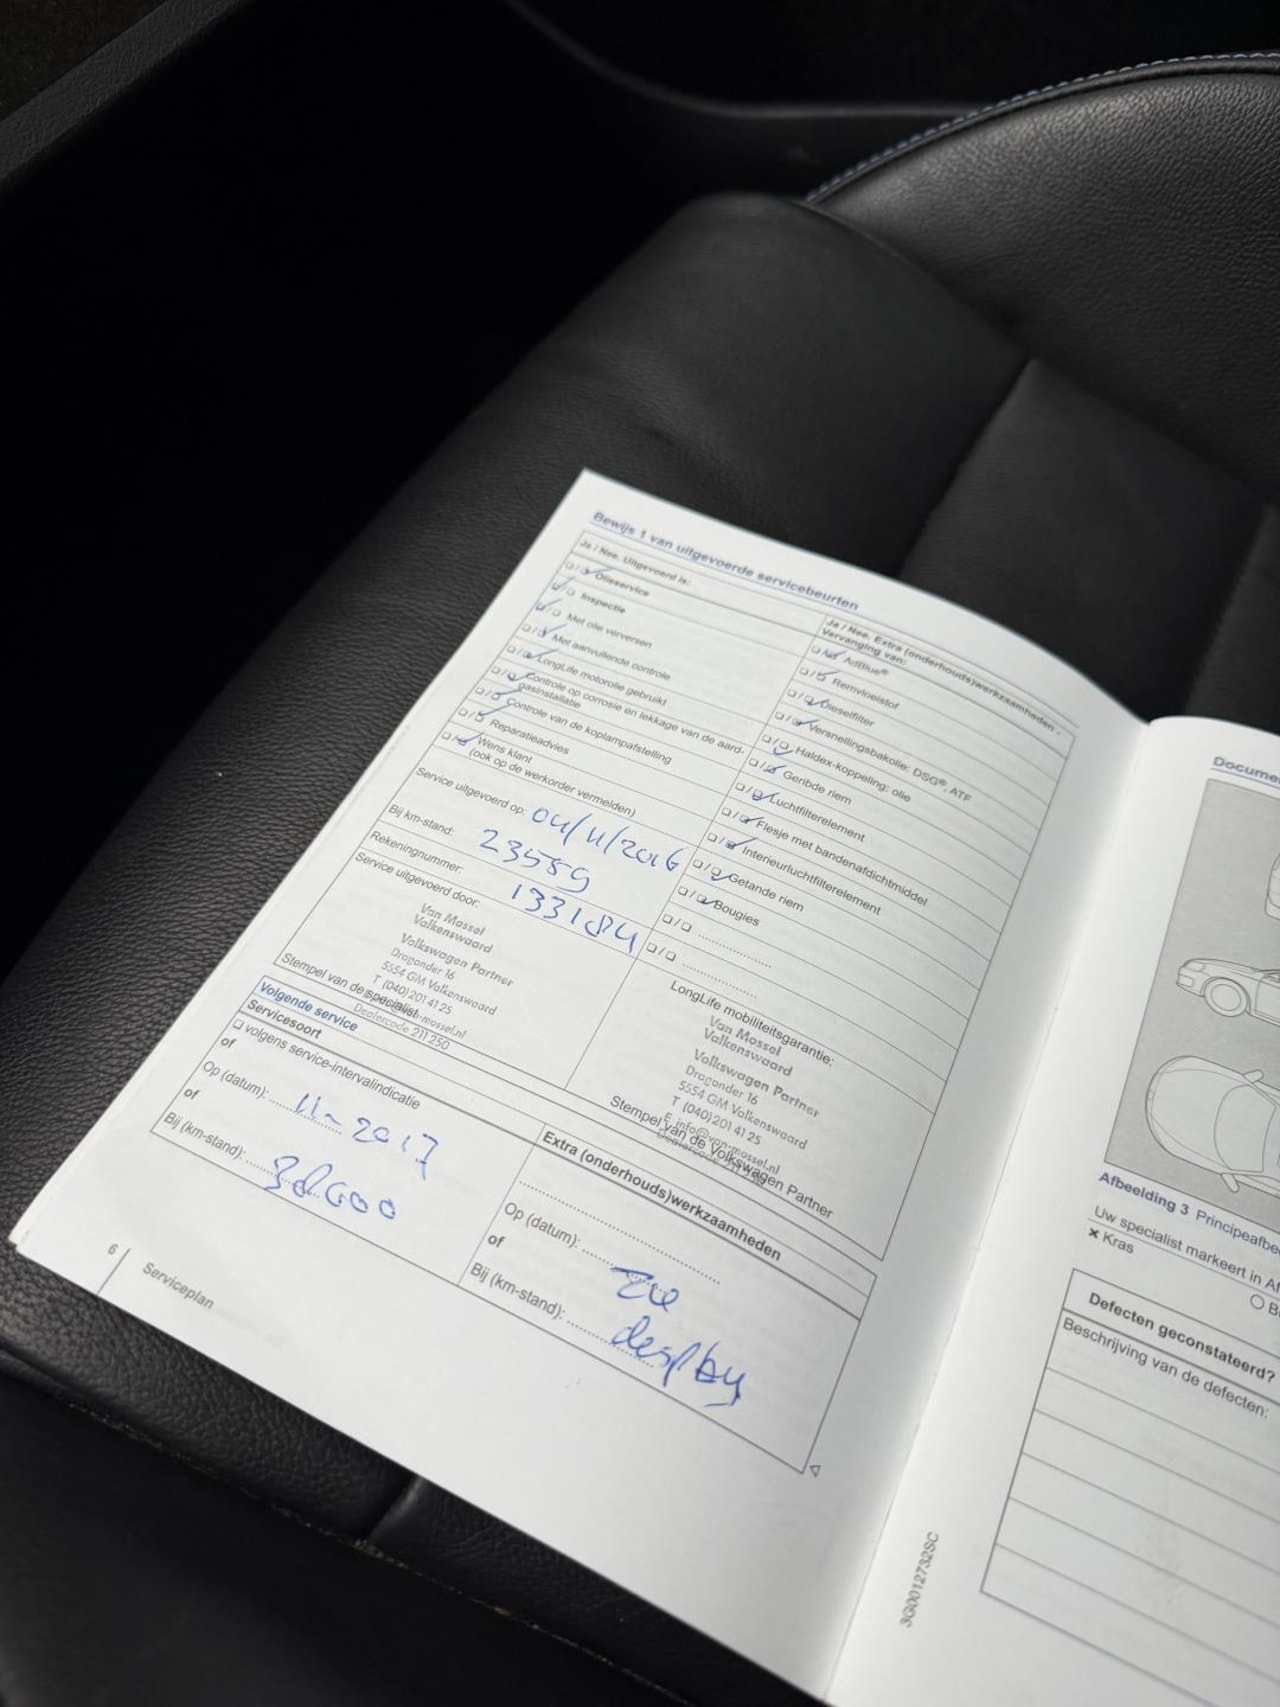 Bewijs 1 van uitgevoerde servicebeurten
Ja / Nee. Uitgevoerd is:
Olieservice
Inspectie
Met olie verversen
Met aanvullende controle
LongLife motorolie gebruikt
Controle op corrosie en lekkage van de aard-
gasinstallatie
Controle van de koplampafstelling
Reparatieadvies
Wens klant
(ook op de werkorder vermelden)
Service uitgevoerd op: 04/11/2016
Bij km-stand: 23559
Rekeningnummer: 133184
Service uitgevoerd door:
Van Mossel
Valkenswaard
Volkswagen Partner
Dragonder 16
5554 GM Valkenswaard
T (040) 201 41 25
Dealercode 211 250
Stempel van de specialist
Ja / Nee. Extra (onderhouds)werkzaamheden -
Vervanging van:
AdBlue®
Remvloeistof
Dieselfilter
Versnellingsbakolie: DSG®, ATF
Haldex-koppeling: olie
Geribde riem
Luchtfilterelement
Flesje met bandenafdichtmiddel
Interieurluchtfilterelement
Getande riem
Bougies
LongLife mobiliteitsgarantie:
Van Mossel
Valkenswaard
Volkswagen Partner
Dragonder 16
5554 GM Valkenswaard
T (040) 201 41 25
E info@van-mossel.nl
Stempel van de Volkswagen Partner
Volgende service
Servicesoort
volgens service-intervalindicatie
of
Op (datum): 11-2017
of
Bij (km-stand):
Extra (onderhouds)werkzaamheden
Op (datum): zie
of
Bij (km-stand): display
6
Serviceplan
Afbeelding 3
Uw specialist markeert in
Kras
Defecten geconstateerd?
Beschrijving van de defecten:
3G0012732SC